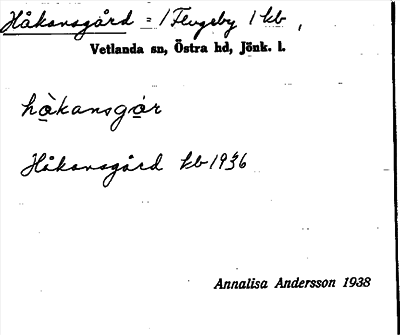 Håkansgård = 1 Flugeby 1 kb,
Vetlanda sn, Östra hd, Jönk. l.
hå̀kansgå̀r
Håkansgård kb 1936
Annalisa Andersson 1938